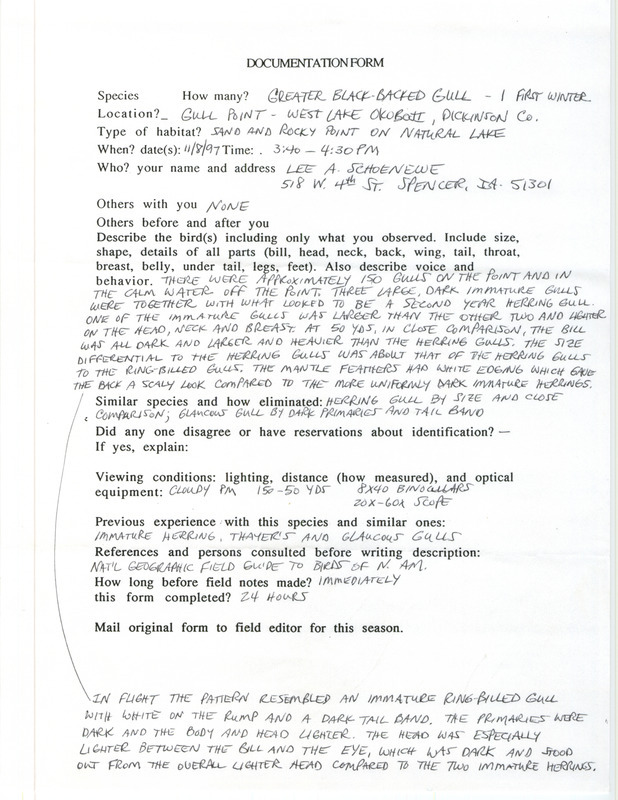 DOCUMENTATION FORM
Species How many? GREATER BLACK-BACKED GULL - 1 FIRST WINTER
Location?_ GULL POINT - WEST LAKE OKOBOJI, DICKINSON CO.
Type of habitat? SAND AND ROCKY POINT ON NATURAL LAKE
When? date(s): 11/8/97 Time: . 3:40 - 4:30 PM
Who? your name and address LEE A. SCHOENEWE
518 W. 4th ST. SPENCER, IA. 51301
Others with you NONE
Others before and after you
Describe the bird(s) including only what you observed. Include size,
shape, details of all parts (bill, head, neck, back, wing, tail, throat,
breast, belly, under tail, legs, feet). Also describe voice and
behavior. THERE WERE APPROXIMATELY 150 GULLS ON THE POINT AND IN
THE CALM WATER OFF THE POINT. THREE LARGE, DARK IMMATURE GULLS
WERE TOGETHER WITH WHAT LOOKED TO BE A SECOND YEAR HERRING GULL.
ONE OF THE IMMATURE GULLS WAS LARGER THAN THE OTHER TWO AND LIGHTER
ON THE HEAD, NECK AND BREAST. AT 50 YDS, IN CLOSE COMPARISON, THE BILL
WAS ALL DARK AND LARGER AND HEAVIER THAN THE HERRING GULLS. THE SIZE
DIFFERENTIAL TO THE HERRING GULLS WAS ABOUT THAT OF THE HERRING GULLS
TO THE RING-BILLED GULLS. THE MANTLE FEATHERS HAD WHITE EDGING WHICH GAVE
THE BACK A SCALY LOOK COMPARED TO THE MORE UNIFORMLY DARK IMMATURE HERRINGS.
Similar species and how eliminated: HERRING GULL BY SIZE AND CLOSE
COMPARISON; GLAUCOUS GULL BY DARK PRIMARIES AND TAIL BAND
Did any one disagree or have reservations about identification? —
If yes, explain:
Viewing conditions: lighting, distance (how measured), and optical
equipment: CLOUDY PM 150-50 YDS 8X40 BINOCULARS
20X-60X SCOPE
Previous experience with this species and similar ones:
IMMATURE HERRING, THAYER'S AND GLAUCOUS GULLS
References and persons consulted before writing description:
NAT'L GEOGRAPHIC FIELD GUIDE TO BIRDS OF N. AM.
How long before field notes made? IMMEDIATELY
this form completed? 24 HOURS
Mail original form to field editor for this season.
IN FLIGHT THE PATTERN RESEMBLED AN IMMATURE RING-BILLED GULL
WITH WHITE ON THE RUMP AND A DARK TAIL BAND. THE PRIMARIES WERE
DARK AND THE BODY AND HEAD LIGHTER. THE HEAD WAS ESPECIALLY
LIGHTER BETWEEN THE BILL AND THE EYE, WHICH WAS DARK AND STOOD
OUT FROM THE OVERALL LIGHTER HEAD COMPARED TO THE TWO IMMATURE HERRINGS.